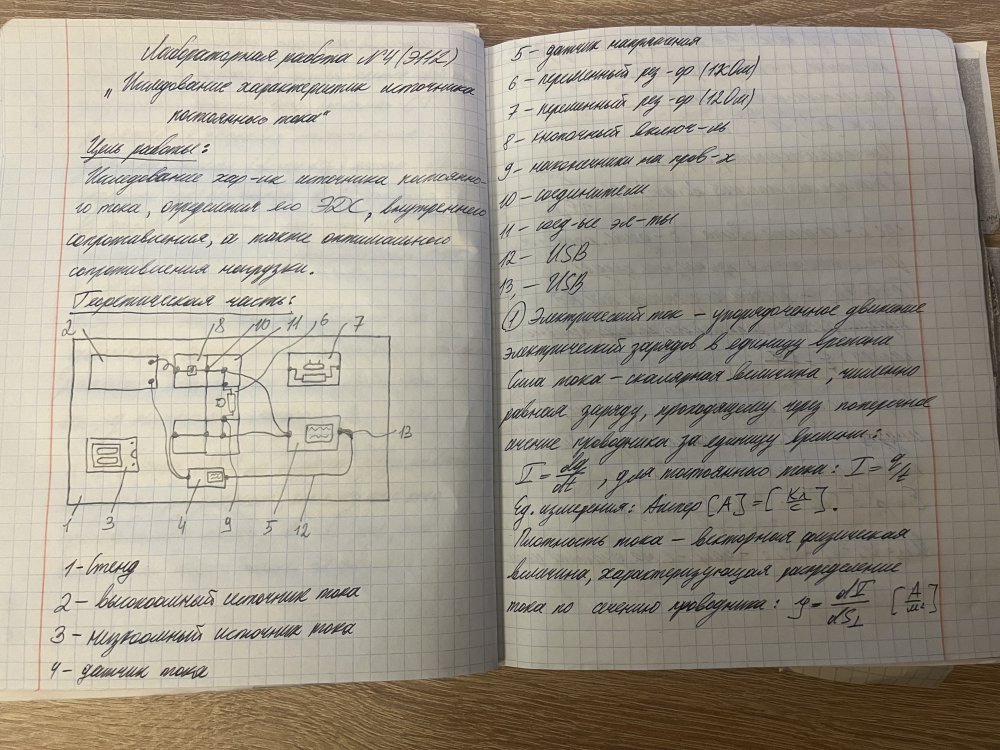 Лабораторная работа №4 (Э112)
"Исследование характеристик источника
постоянного тока"
Цель работы:
Исследование хар-ик источника постоянно-
го тока, определения его ЭДС, внутреннего
сопротивления, а также оптимального
сопротивления нагрузки.
Теоретическая часть:
2 8 10 11 6 7
13
1 3 4 9 5 12
1 - Стенд
2 - высокоомный источник тока
3 - низкоомный источник тока
4 - датчик тока
5 - датчик напряжения
6 - переменный рез-ор (1кОм)
7 - переменный рез-ор (12Ом)
8 - кнопочный включ-ль
9 - наконечники на пров-х
10 - соединители
11 - соед-ые эл-ты
12 - USB
13, - USB
① Электрический ток - упорядоченное движение
электрический зарядов в единицу времени
Сила тока - скалярная величина, численно
равная заряду, проходящему через поперечное
сечение проводника за единицу времени:
I = dq/dt , для постоянного тока: I = q/t
Ед. измерения: Ампер [А] = [Кл/с].
Плотность тока - векторная физическая
величина, характеризующая распределение
тока по сечению проводника: j = dI/dS⊥ [А/м²]